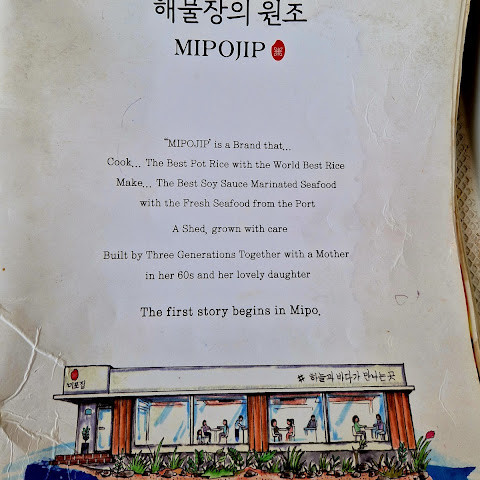 해물장의 원조
MIPOJIP
"MIPOJIP" is a Brand that...
Cook... The Best Pot Rice with the World Best Rice
Make... The Best Soy Sauce Marinated Seafood
with the Fresh Seafood from the Port
A Shed, grown with care
Built by Three Generations Together with a Mother
in her 60s and her lovely daughter
The first story begins in Mipo.
미포집
하늘과 바다가 만나는 곳